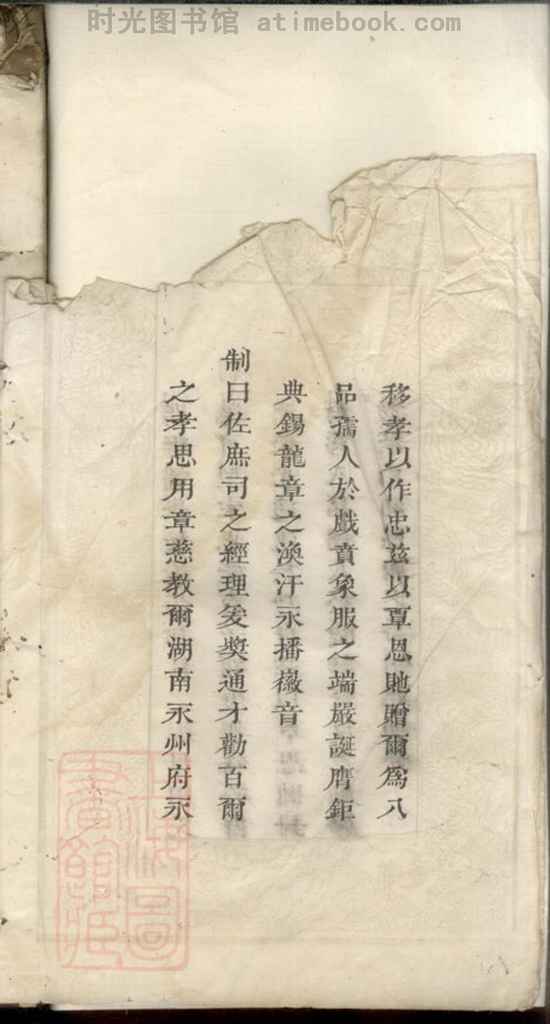 时光图书馆 atimebook.com
移孝以作忠茲以覃恩貤贈爾爲八
品孺人於戲賁象服之端嚴誕膺鉅
典錫龍章之渙汗永播徽音
制曰佐庶司之經理爰奬通才勸百爾
之孝思用章慈教爾湖南永州府永